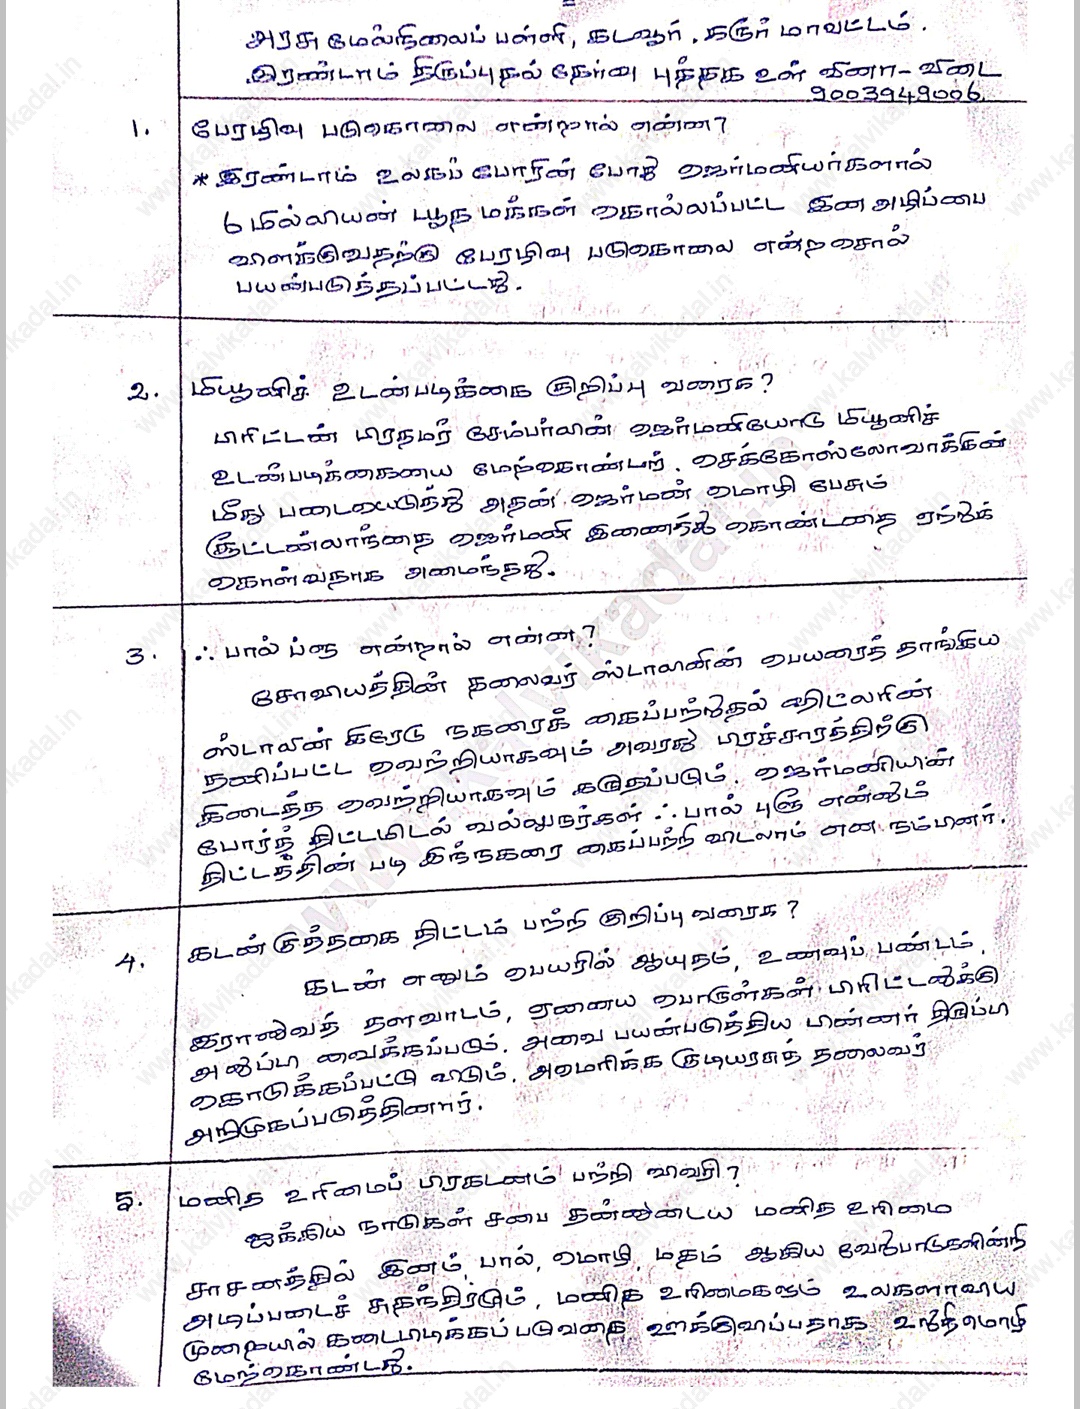 அரசு மேல்நிலைப் பள்ளி, கடவூர். கரூர் மாவட்டம்.
இரண்டாம் திருப்புதல் தேர்வு புத்தக உள் வினா - விடை
9003949006
1. பேரழிவு படுகொலை என்றால் என்ன?
* இரண்டாம் உலகப் போரின் போது ஜெர்மனியர்களால்
6 மில்லியன் யூத மக்கள் கொல்லப்பட்ட இன அழிப்பை
விளக்குவதற்கு பேரழிவு படுகொலை என்ற சொல்
பயன்படுத்தப்பட்டது.
2. மியூனிச் உடன்படிக்கை குறிப்பு வரைக?
பிரிட்டன் பிரதமர் சேம்பர்லின் ஜெர்மனியோடு மியூனிச்
உடன்படிக்கையை மேற்கொண்டார். செக்கோஸ்லோவாக்கின்
மீது படையெடுத்து அதன் ஜெர்மன் மொழி பேசும்
சூட்டன்லாந்தை ஜெர்மனி இணைத்து கொண்டதை ஏற்றுக்
கொள்வதாக அமைந்தது.
3. ஃபால் ப்ளூ என்றால் என்ன?
சோவியத்தின் தலைவர் ஸ்டாலினின் பெயரைத் தாங்கிய
ஸ்டாலின் கிரேடு நகரைக் கைப்பற்றுதல் ஹிட்லரின்
தனிப்பட்ட வெற்றியாகவும் அவரது பிரச்சாரத்திற்கு
கிடைத்த வெற்றியாகவும் கருதப்படும். ஜெர்மனியின்
போர்த் திட்டமிடல் வல்லுநர்கள் ஃபால் புளூ என்னும்
திட்டத்தின் படி இந்நகரை கைப்பற்றி விடலாம் என நம்பினர்.
4. கடன் குத்தகை திட்டம் பற்றி குறிப்பு வரைக?
கடன் எனும் பெயரில் ஆயுதம், உணவுப் பண்டம்,
இராணுவத் தளவாடம், ஏனைய பொருள்கள் பிரிட்டனுக்கு
அனுப்பி வைக்கப்படும். அவை பயன்படுத்திய பின்னர் திருப்பி
கொடுக்கப்பட்டு விடும். அமெரிக்க குடியரசுத் தலைவர்
அறிமுகப்படுத்தினார்.
5. மனித உரிமைப் பிரகடனம் பற்றி விவரி?
ஐக்கிய நாடுகள் சபை தன்னுடைய மனித உரிமை
சாசனத்தில் இனம், பால், மொழி, மதம் ஆகிய வேறுபாடுகளின்றி
அடிப்படைச் சுதந்திரமும், மனித உரிமைகளும் உலகளாவிய
முறையில் கடைபிடிக்கப் படுவதை ஊக்குவிப்பதாக உறுதிமொழி
மேற்கொண்டது.
www.kalvikadal.in